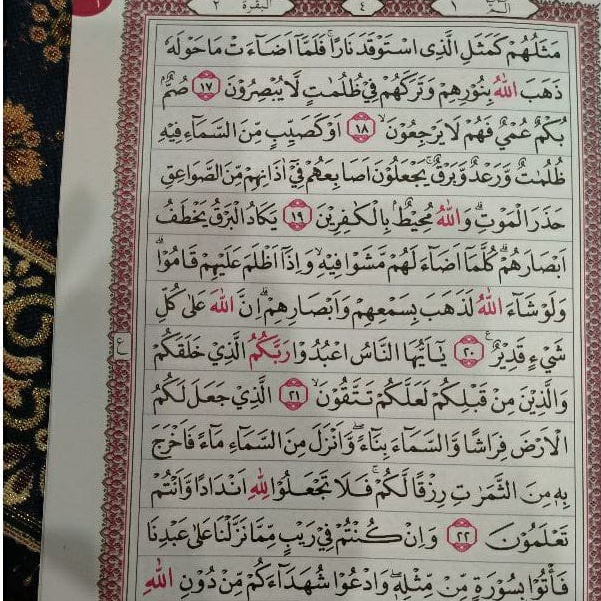 ١ البقرة ٢ ٤ الٓمّٓ ١
مَثَلُهُمْ كَمَثَلِ الَّذِى اسْتَوْقَدَ نَارًا ۚ فَلَمَّآ اَضَآءَتْ مَا حَوْلَهٗ
ذَهَبَ اللّٰهُ بِنُوْرِهِمْ وَتَرَكَهُمْ فِيْ ظُلُمٰتٍ لَّا يُبْصِرُوْنَ ١٧ صُمٌّۢ
بُكْمٌ عُمْيٌ فَهُمْ لَا يَرْجِعُوْنَ ۙ ١٨ اَوْ كَصَيِّبٍ مِّنَ السَّمَآءِ فِيْهِ
ظُلُمٰتٌ وَّرَعْدٌ وَّبَرْقٌ ۚ يَجْعَلُوْنَ اَصَابِعَهُمْ فِيْٓ اٰذَانِهِمْ مِّنَ الصَّوَاعِقِ
حَذَرَ الْمَوْتِ ۗ وَاللّٰهُ مُحِيْطٌۢ بِالْكٰفِرِيْنَ ١٩ يَكَادُ الْبَرْقُ يَخْطَفُ
اَبْصَارَهُمْ ۗ كُلَّمَآ اَضَآءَ لَهُمْ مَّشَوْا فِيْهِ ۙ وَاِذَآ اَظْلَمَ عَلَيْهِمْ قَامُوْا ۗ
وَلَوْ شَآءَ اللّٰهُ لَذَهَبَ بِسَمْعِهِمْ وَاَبْصَارِهِمْ ۗ اِنَّ اللّٰهَ عَلٰى كُلِّ
شَيْءٍ قَدِيْرٌ ࣖ ٢٠ يٰٓاَيُّهَا النَّاسُ اعْبُدُوْا رَبَّكُمُ الَّذِيْ خَلَقَكُمْ
ع
وَالَّذِيْنَ مِنْ قَبْلِكُمْ لَعَلَّكُمْ تَتَّقُوْنَ ۙ ٢١ الَّذِيْ جَعَلَ لَكُمُ
الْاَرْضَ فِرَاشًا وَّالسَّمَآءَ بِنَآءً ۖ وَّاَنْزَلَ مِنَ السَّمَآءِ مَآءً فَاَخْرَجَ
بِهٖ مِنَ الثَّمَرٰتِ رِزْقًا لَّكُمْ ۚ فَلَا تَجْعَلُوْا لِلّٰهِ اَنْدَادًا وَّاَنْتُمْ
تَعْلَمُوْنَ ٢٢ وَاِنْ كُنْتُمْ فِيْ رَيْبٍ مِّمَّا نَزَّلْنَا عَلٰى عَبْدِنَا
فَأْتُوْا بِسُوْرَةٍ مِّنْ مِّثْلِهٖ ۖ وَادْعُوْا شُهَدَآءَكُمْ مِّنْ دُوْنِ اللّٰهِ